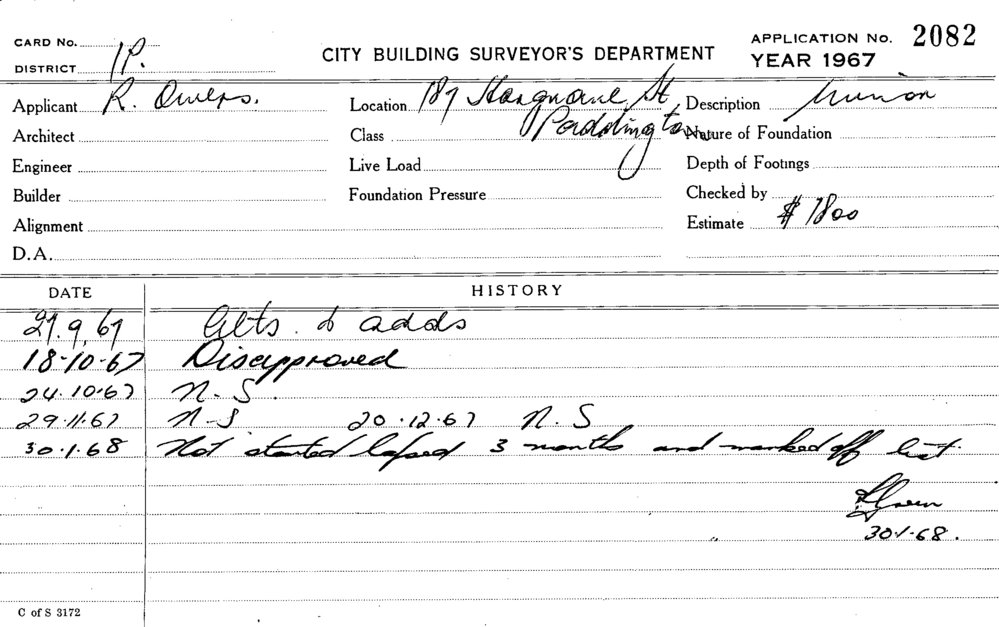 CARD No. 1P. CITY BUILDING SURVEYOR'S DEPARTMENT APPLICATION No. 2082
DISTRICT YEAR 1967
Applicant R. Owens. Location 189 Hargrave St, Paddington Description
Architect Class Nature of Foundation
Engineer Live Load Depth of Footings
Builder Foundation Pressure Checked by
Alignment Estimate $ 1800
D.A.
DATE HISTORY
27.9.67 Alts. & adds
18-10-67 Disapproved
24.10.67 N.S.
29.11.67 N-S 20.12.67 N.S
30.1.68 Not started lapsed 3 months and marked off list.
30.1.68.
C of S 3172